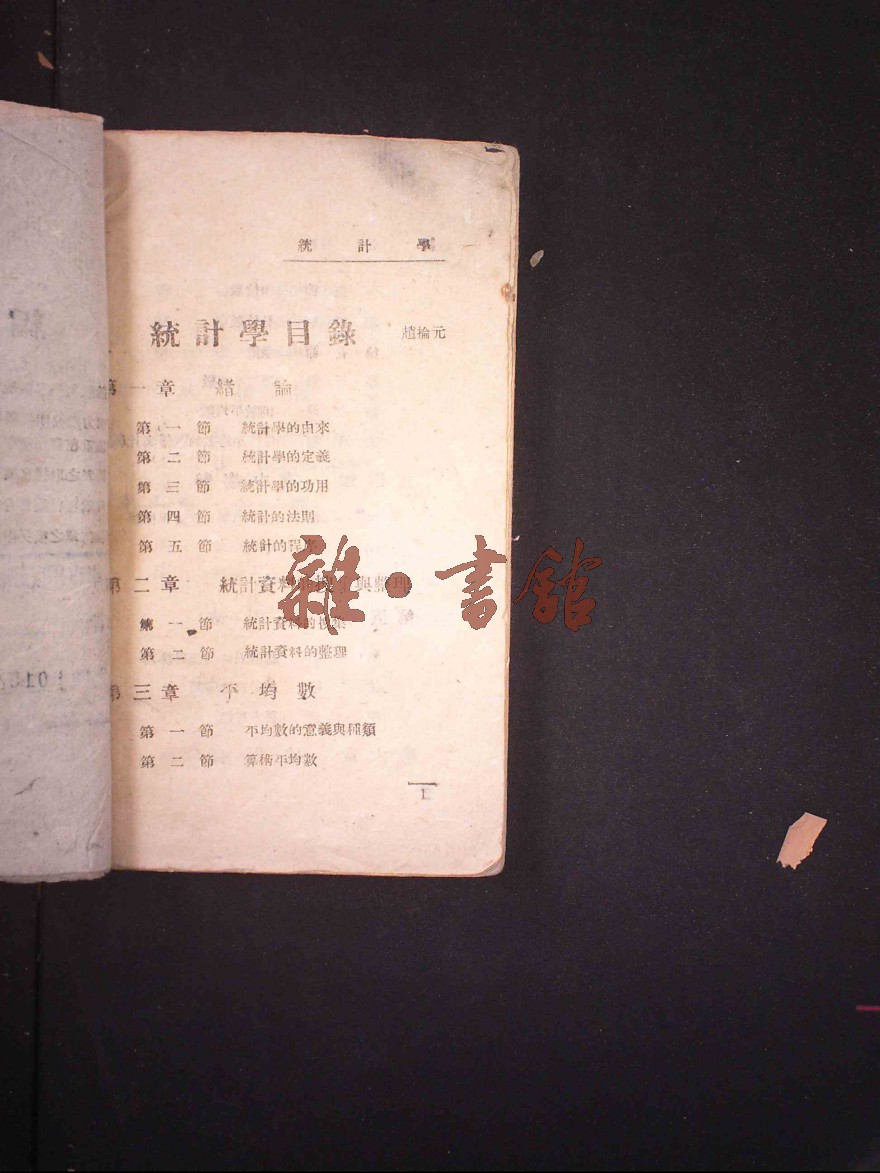 統計學
統計學目錄 趙掄元
第一章 緒論
第一節 統計學的由來
第二節 統計學的定義
第三節 統計學的功用
第四節 統計的法則
第五節 統計的程序
第二章 統計資料的搜集與整理
第一節 統計資料的搜集
第二節 統計資料的整理
第三章 平均數
第一節 平均數的意義與種類
第二節 算術平均數
1
雜·書館